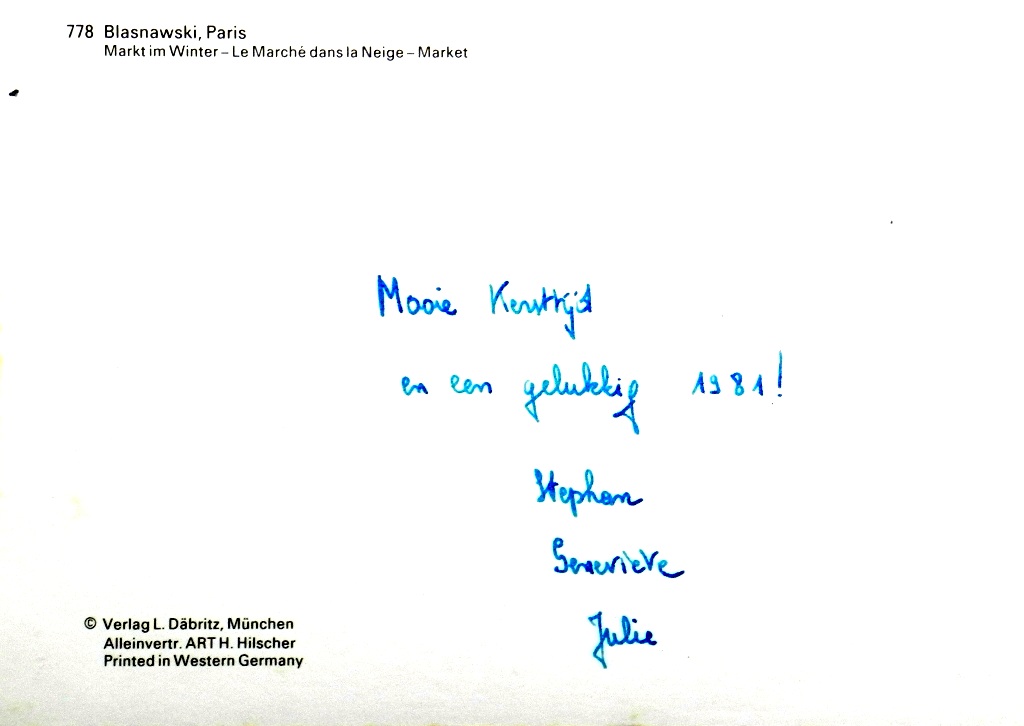 778 Blasnawski, Paris
Markt im Winter – Le Marché dans la Neige – Market
Mooie Kersttijd
en een gelukkig 1981!
Stephan
Genevieve
Julie
© Verlag L. Däbritz, München
Alleinvertr. ART H. Hilscher
Printed in Western Germany